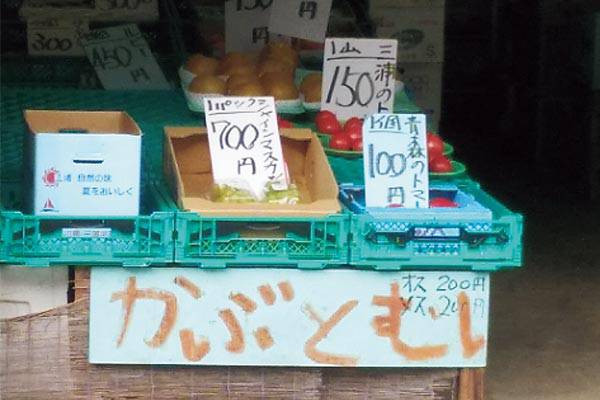 300
450
円
700
円
1山
三浦のト
150
1パック
ケインマスカット
700
円
1個
青森のトマト
100
円
三浦 自然の味
夏をおいしく
かぶとむし
オス 200円
メス 200円